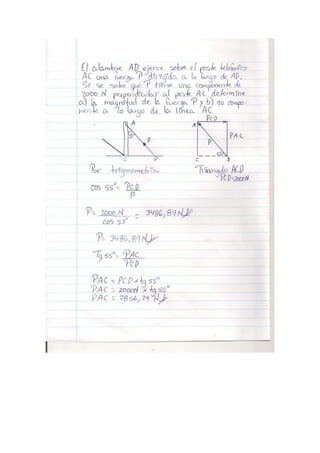 El alambre AD ejerce sobre el poste telefonico
AC una fuerza P dirigida a lo largo de AD.
Si se sabe que P tiene una componente de
2000 N perpendicular al poste AC determine
a) la magnitud de la fuerza P y b) su compo-
nente a lo largo de la línea AC
PCD
A
A
P
P
PAC
C
D
C
D
Por trigonometría
Triangulo ACD
PCD=2000N
cos 55° = PCD
P
P = 2000 N = 3486,89 N
cos 55°
P = 3486,89 N
Tg 55° = PAC
PCD
PAC = PCD * tg 55°
PAC = 2000N * tg 55°
PAC = 2856,29 N